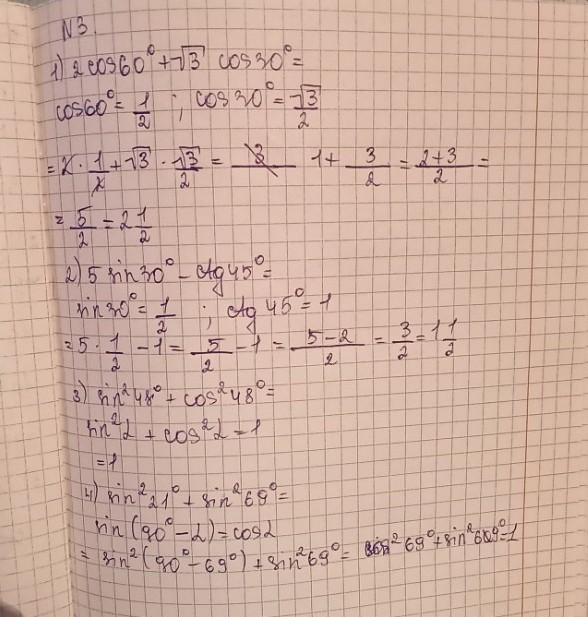 N3.
1) 2cos60° + √3 cos30° =
cos60° = 1/2 ; cos30° = √3/2
= 2 · 1/2 + √3 · √3/2 = 1 + 3/2 = (2+3)/2 =
= 5/2 = 2 1/2
2) 5 sin30° - ctg45° =
sin30° = 1/2 ; ctg45° = 1
= 5 · 1/2 - 1 = 5/2 - 1 = (5-2)/2 = 3/2 = 1 1/2
3) sin²48° + cos²48° =
sin²α + cos²α = 1
= 1
4) sin²21° + sin²69° =
sin(90° - α) = cosα
= sin²(90° - 69°) + sin²69° = cos²69° + sin²69° = 1